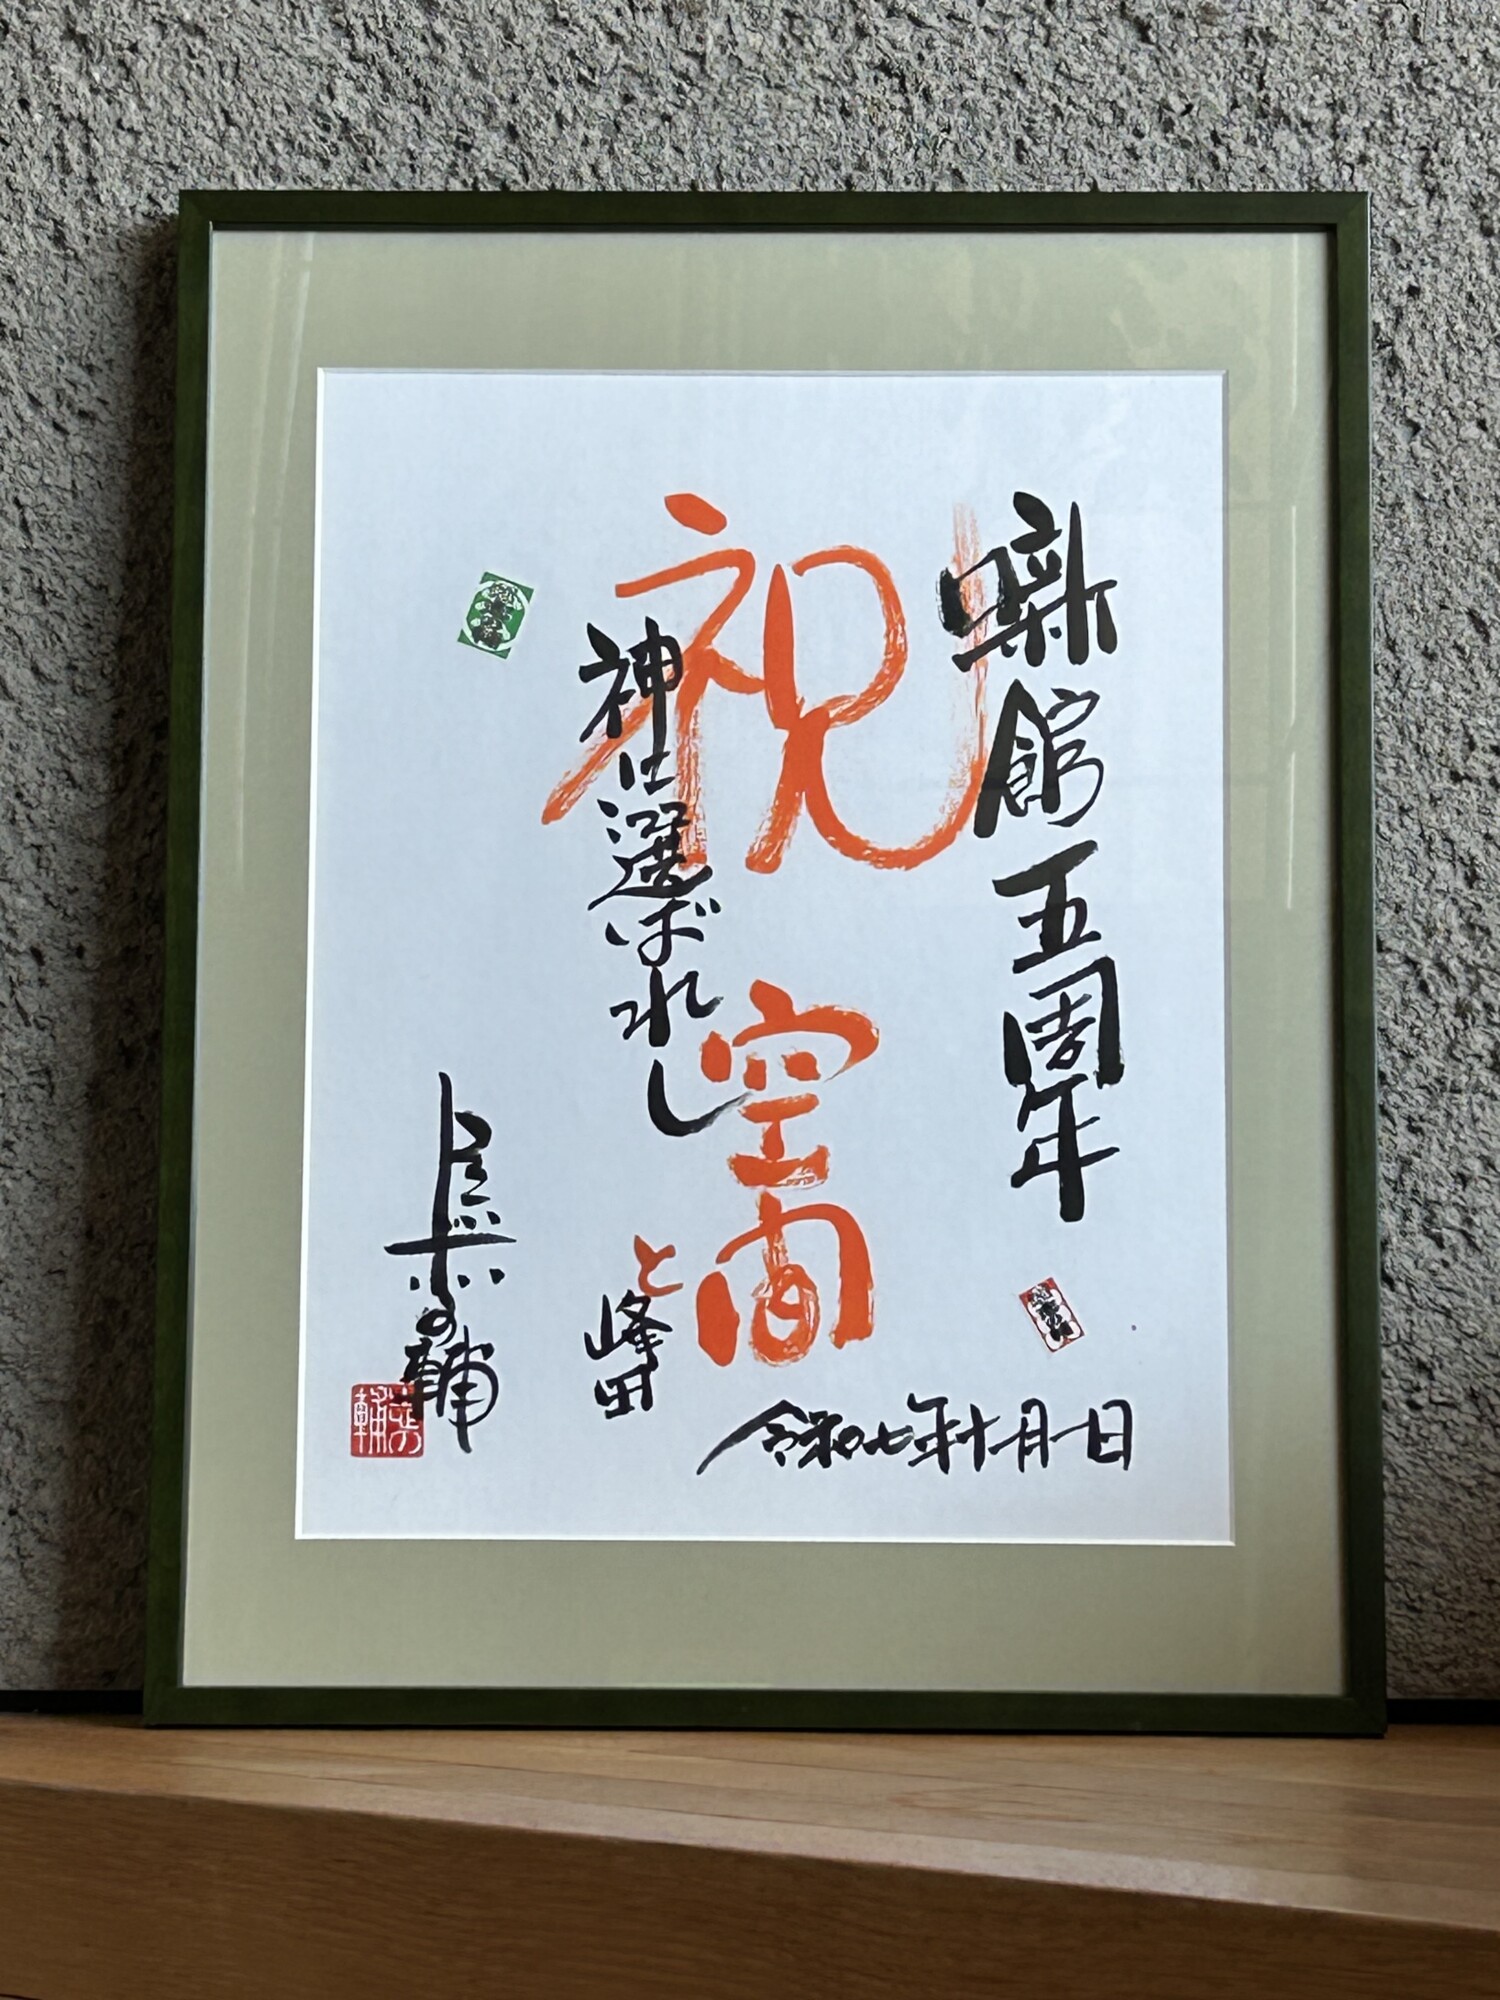 噺館五周年
祝
神に選ばれし
空間
と峰田
令和七年十月一日